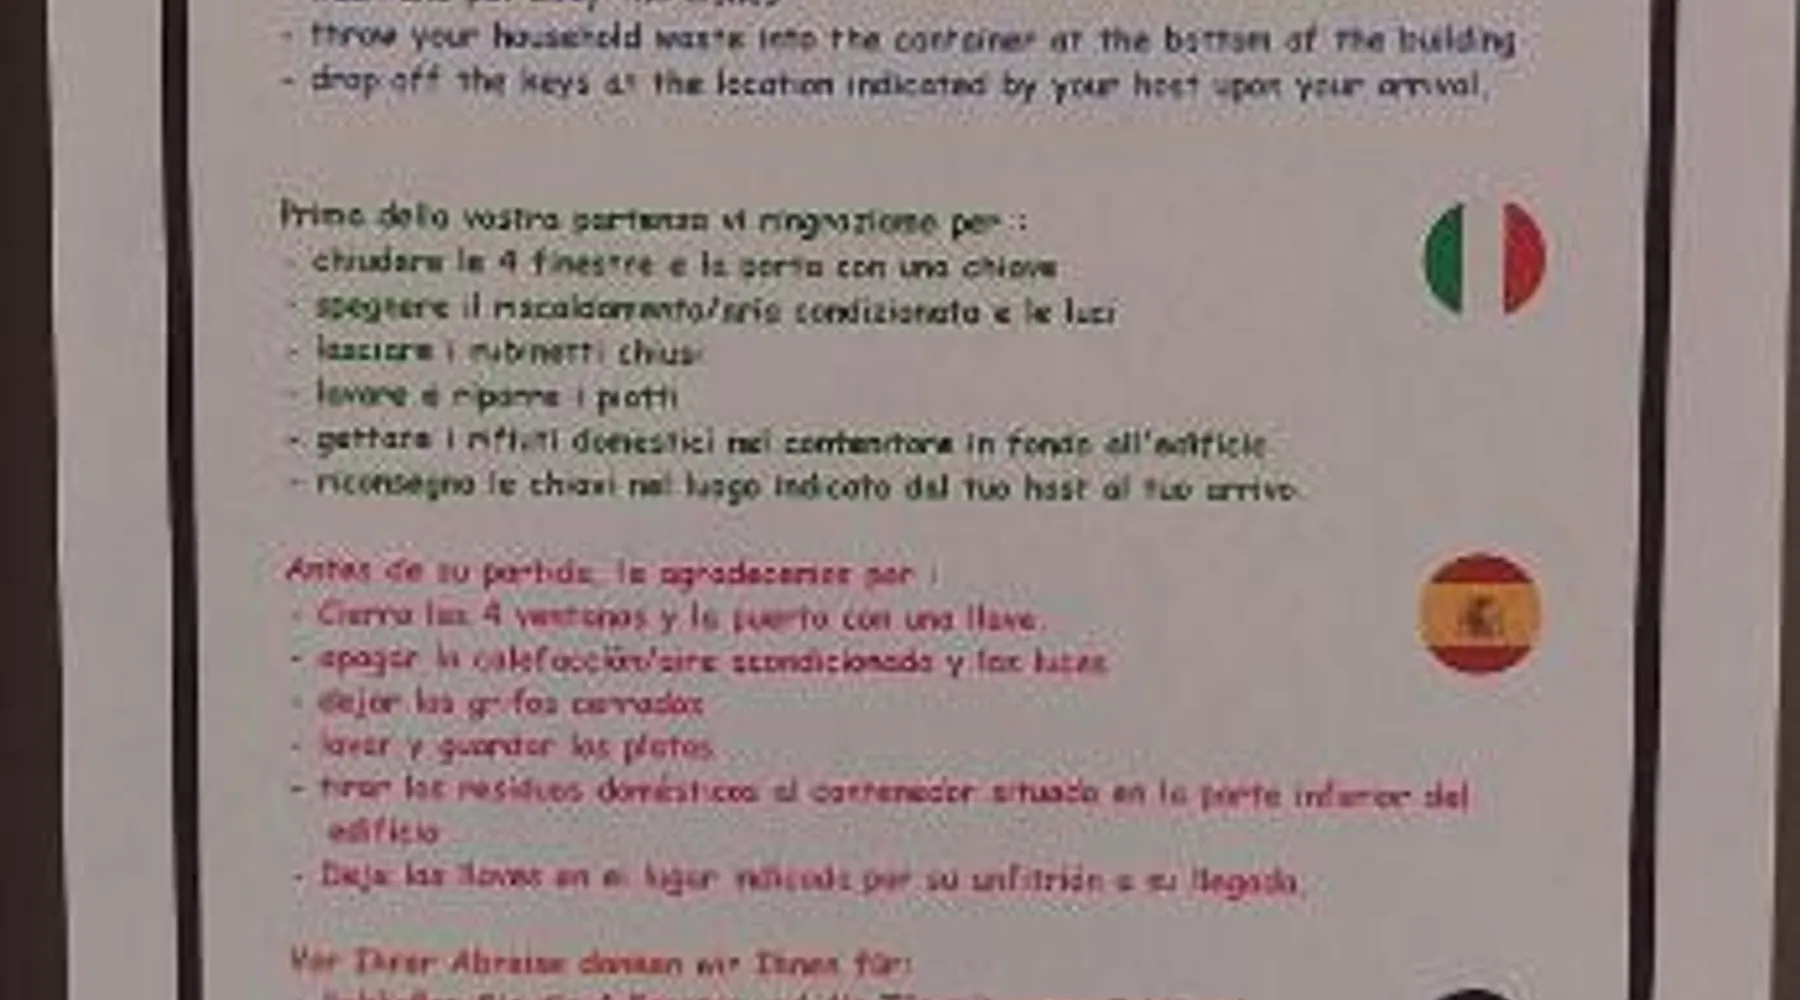 - throw your household waste into the container at the bottom of the building
- drop off the keys at the location indicated by your host upon your arrival.
Prima della vostra partenza vi ringraziamo per :
- chiudere le 4 finestre e la porta con una chiave
- spegnere il riscaldamento/aria condizionata e le luci
- lasciare i rubinetti chiusi
- lavare e riporre i piatti
- gettare i rifiuti domestici nel contenitore in fondo all'edificio
- riconsegna le chiavi nel luogo indicato dal tuo host al tuo arrivo.
Antes de su partida, le agradecemos por :
- Cierra las 4 ventanas y la puerta con una llave.
- apagar la calefacción/aire acondicionado y las luces
- dejar los grifos cerrados
- lavar y guardar los platos
- tirar los residuos domésticos al contenedor situado en la parte inferior del
edificio
- Deja las llaves en el lugar indicado por su anfitrión a su llegada.
Vor Ihrer Abreise danken wir Ihnen für: